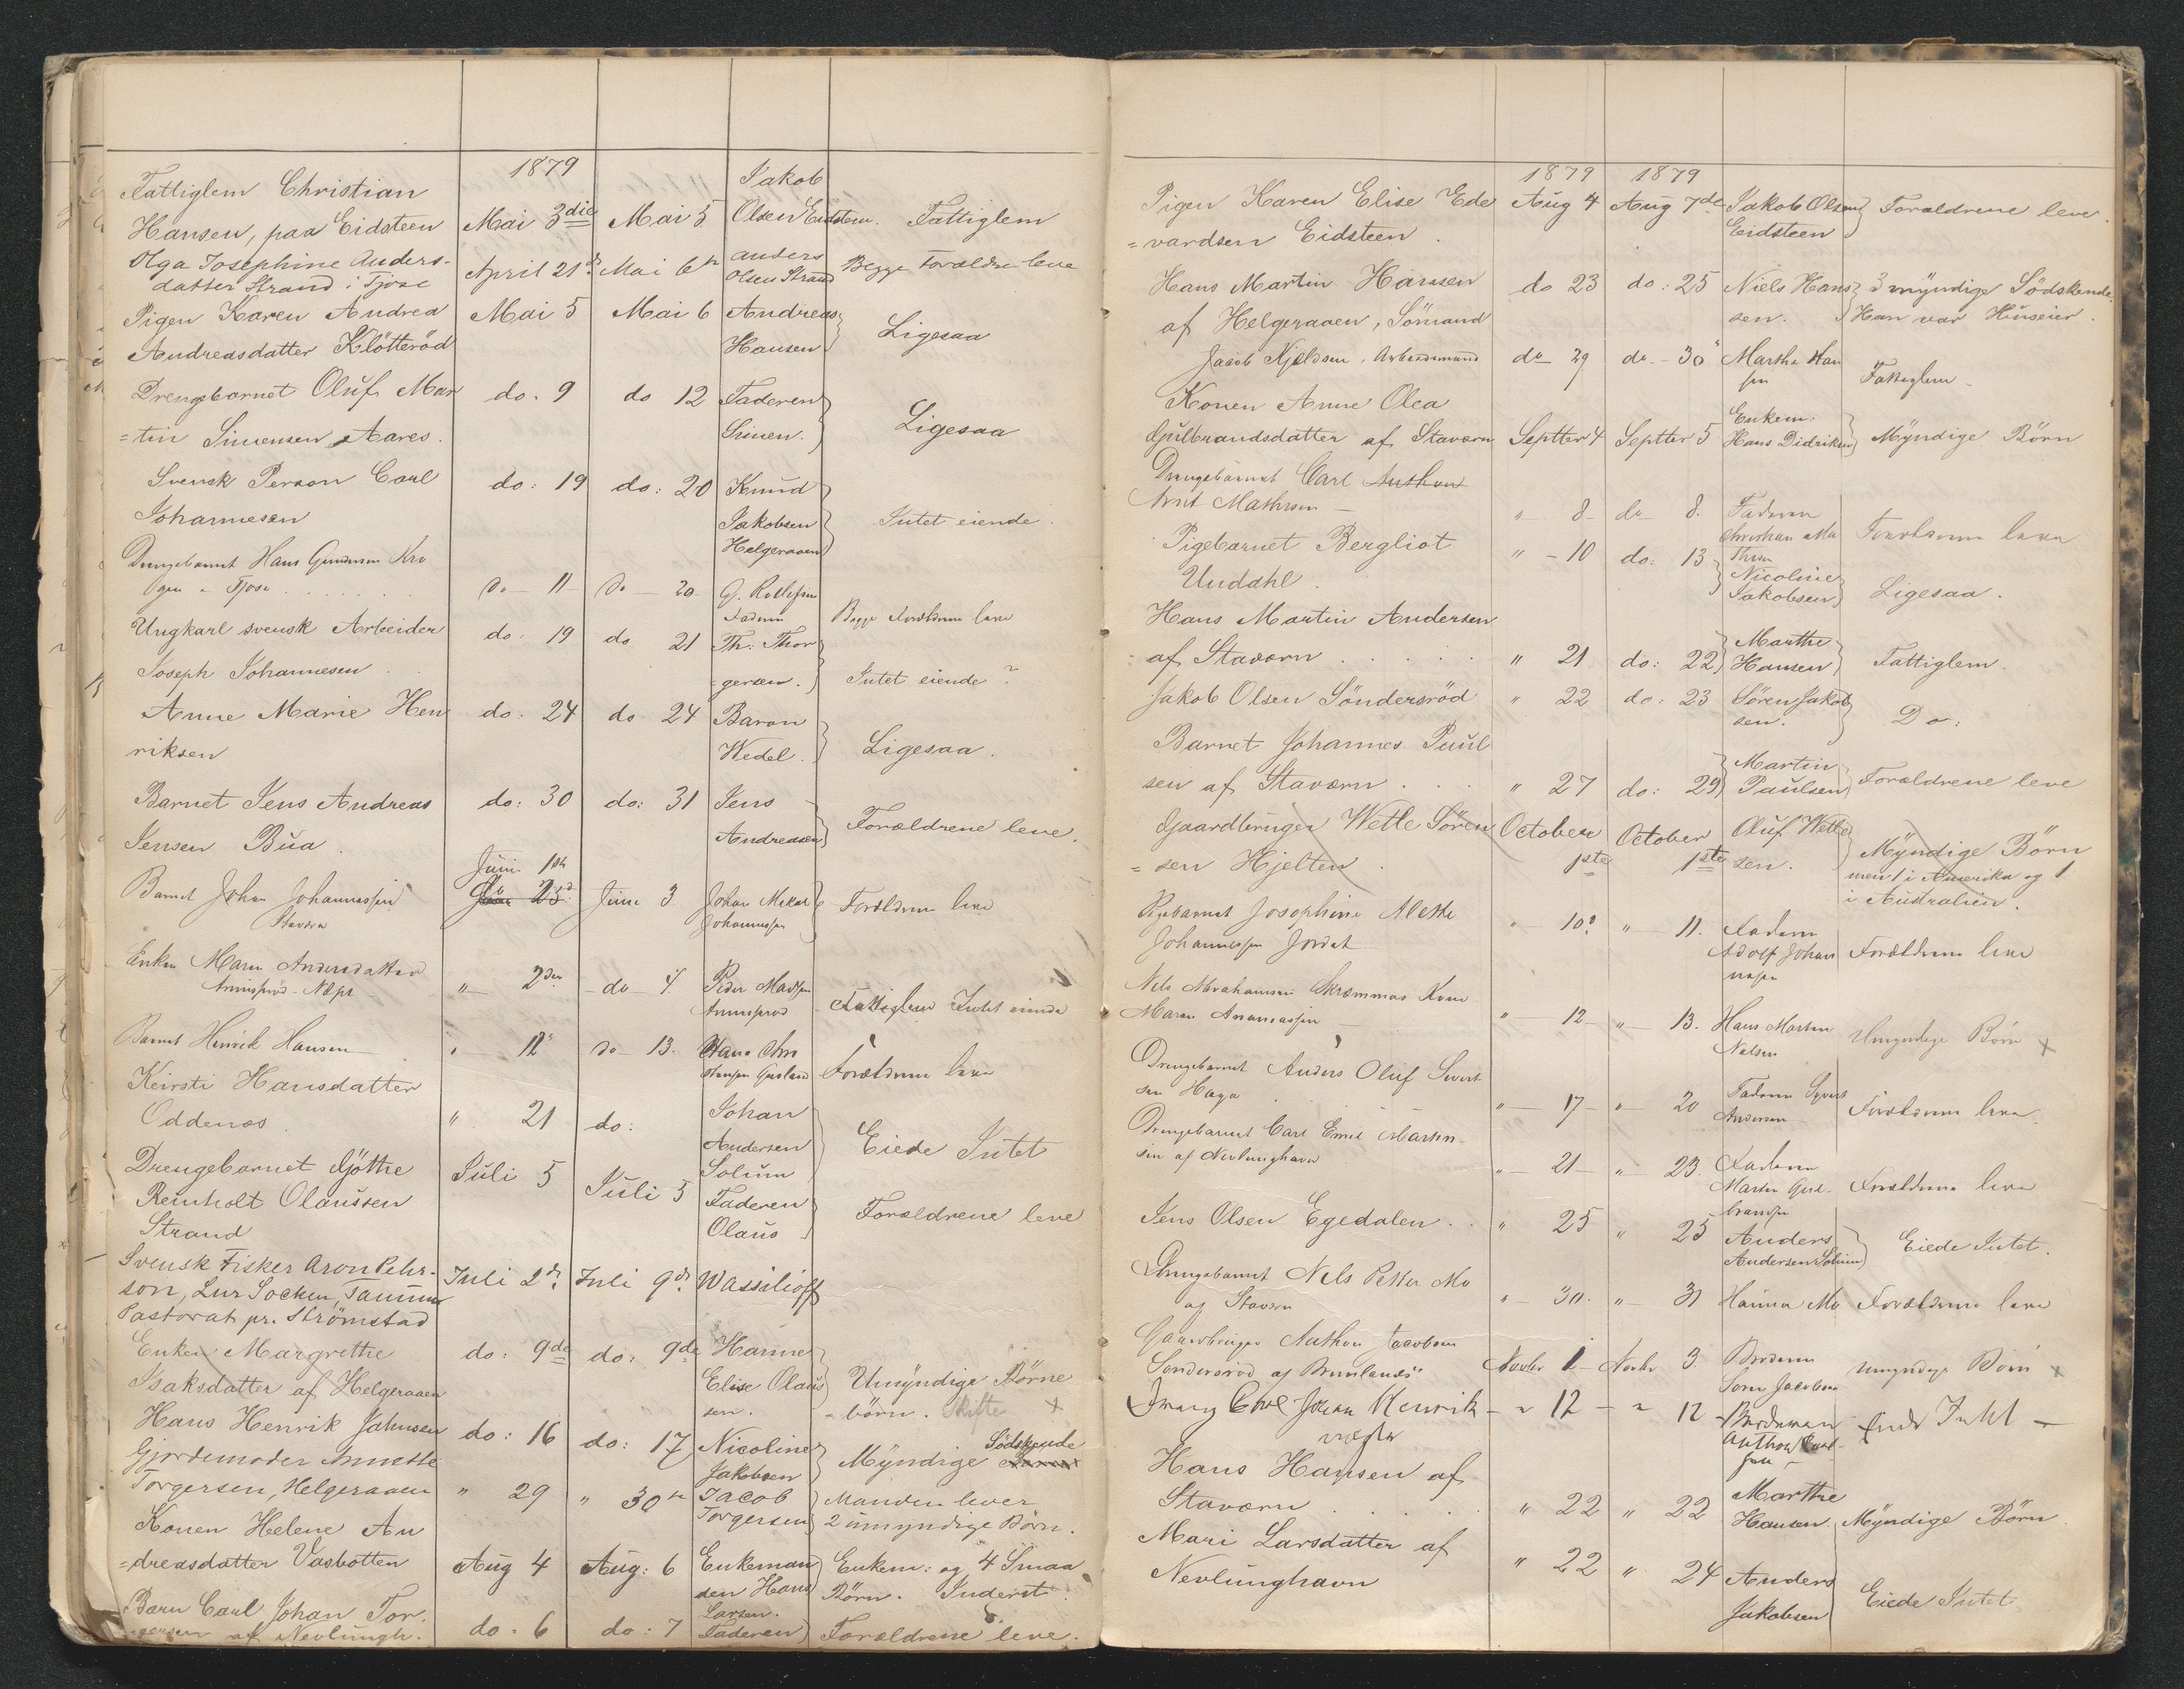 1879
Fattiglem Christian
Hansen, paa Eidsteen Mai 3die Mai 5 Jakob Olsen Eidsteen. Fattiglem
Olga Josephine Anders-
datter Strand i Tjose April 21de Mai 6te Anders Olsen Strand Begge Forældre leve
Pigen Karen Andrea Mai 5 Mai 6 Andreas
Andreasdatter Klötteröd Hansen Ligesaa
Drengebarnet Oluf Mar do. 9 do 12 Faderen
=tin Simensen Aares. Simen. Ligesaa
Svensk Person Carl do: 19 do: 20 Knud
Johannesen Jakobsen Helgeraaen Intet eiende.
Drengebarnet Hans Gundersen Kro
gen i Tjose do 11 do 20 G. Rollefsen Faderen Begge Forældrene leve
Ungkarl svensk Arbeider do: 19 do 21 Th: Thor
Joseph Johannesen =gersen. Intet eiende?
Anne Marie Hen do: 24 do 24 Baron
riksen Wedel. Ligesaa.
Barnet Jens Andreas do: 30 do: 31 Jens
Jensen Bua. Andreasen Forældrene leve.
Juni 1ste
Barnet Johan Johannessen Juni 3 Johan Mikal Forældrene leve
Stavern Johannessen
Enken Maren Andersdatter " 2den do 4 Peder Madsen Fattiglem Intet eiende
Barnet Henrik Hansen " 12 do 13. Hans Chri Forældrene leve
Keirsti Hansdatter
Oddenæs. " 21 do: Johan Andersen Solum Eiede Intet
Drengebarnet Gjöthe Juli 5 Juli 5 Faderen
Reinholt Olaussen Olaus Forældrene leve
Strand
Svensk Fisker Aron Pehr-
son, Lur Socken, Tanums Juli 2de Juli 9de Wassilioff
Pastorat pr. Strömstad
Enken Margrethe do: 9de do: 9de Hanne
Isaksdatter af Helgeraaen Elise Olaus sen. Umyndige Börne
=börn. Skifte x
Hans Henrik Jahnsen do: 16 do: 17 Nicoline Jakobsen Myndige Södskende
Gjordemoder Annette
Torgersen, Helgeraaen " 29 " 30te Jacob Torgersen Manden lever
2 umyndige Börn.
Konen Helene An
=dreasdatter Vasbotten Aug 4 Aug: 6 Enkeman den Hans Larsen. Enkem: og 4 Smaa
Börn. Inderst.
Barn Carl Johan Tor.
gersen af Nevlungh. do. 6 do: 7 Faderen Forældrene leve.
1879 1879
Pigen Karen Elise Ede Aug 4 Aug 7de Jakob Olsen Forældrene leve.
=vardsen Eidsteen. Eidsteen
Hans Martin Hanssen do 23 do: 25 Niels Hans 3 myndige Södskende.
af Helgeraaen, Sömand sen. Han var Huseier.
Jacob Kjeldsen, Arbeidsmand do 29 do 30 Marthe Han
sen Fattiglem
Konen Anne Olea
Gulbrandsdatter af Stavern Septter 4 Septter 5 Enkem: Hans Didriksen Myndige Börn
Drengebarnet Carl Anthon
Arnt Mathisen " 8 do 8. Faderen Christian Ma thisen Forældrene leve
Pigebarnet Bergliot " 10 do: 13 Nicoline
Undahl. Jakobsen Ligesaa.
Hans Martin Andersen
af Stavern " 21 do: 22 Marthe Hansen Fattiglem.
Jakob Olsen Söndersröd " 22 do: 23 Sören Jakob
sen. Do:
Barnet Johannes Paul
sen af Stavern " 27 do: 29 Martin Paulsen Forældrene leve
Gaardbruger Wetle Sören October October Oluf Wetle
=sen Hjelten. 1ste 1ste sen. Myndige Börn
men 1 i Amerika og 1
i Australien.
Pigebarnet Josephine Alette " 10 " 11. Faderen Adolf Johan Forældrene leve
Johannessen Jordet nesen
Nils Abrahamsen Skræmmas Kone
Maren Ananiassen " 12 " 13. Hans Martin Nilsen Umyndige Börn x
Drengebarnet Anders Oluf Sivert
sen Haga " 17 " 20 Faderen Syvert Andersen Forældrene leve
Drengebarnet Carl Emil Martin
sen af Nevlunghavn " 21 " 23. Faderen Martin Gul bransen Forældrene leve
Jens Olsen Egedalen. " 25 " 25 Anders Andersen Solum Eiede Intet.
Drengebarnet Nils Petter Mo
af Stavern " 30. " 31 Hanna Mo Forældrene leve
Gaardbruger Anthon Jacobsen
Söndersröd af Brunlanes Novbr 1 Novbr 3. Broderen Sören Jacobsen umyndige Börn x
Carl Johan Henrik " 12 " 12 Anthon Carl sen Intet
Hans Hansen af
Stavern " 22 " 22 Marthe Hansen. Myndige Börn
Mari Larsdatter af
Nevlunghavn " 22 " 24 Anders Jakobsen Eiede Intet